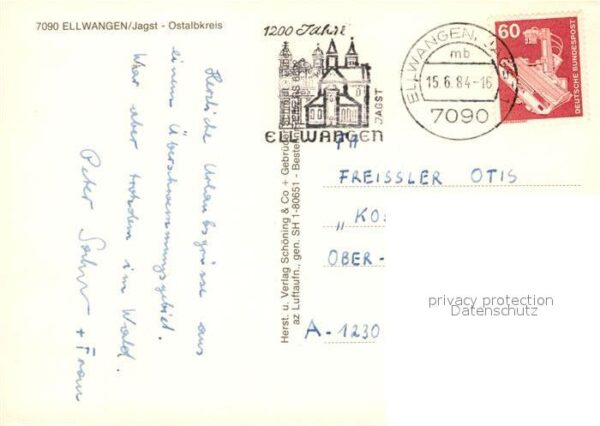 7090 ELLWANGEN/Jagst - Ostalbkreis
Herzliche Urlaubsgrüsse aus
einem Überschwemmungsgebiet.
War aber trotzdem im Wald.
Peter + Frau
Herst. u. Verlag Schöning & Co + Gebrüder
az Luftaufn., gen. SH 1-80651 - Bestell
1200 Jahre
JAGST
ELLWANGEN
ELLWANGEN, JAGST
mb
15.6.84-16
7090
60
DEUTSCHE BUNDESPOST
FREISSLER OTIS
"KO
OBER-
A-1230
privacy protection
Datenschutz